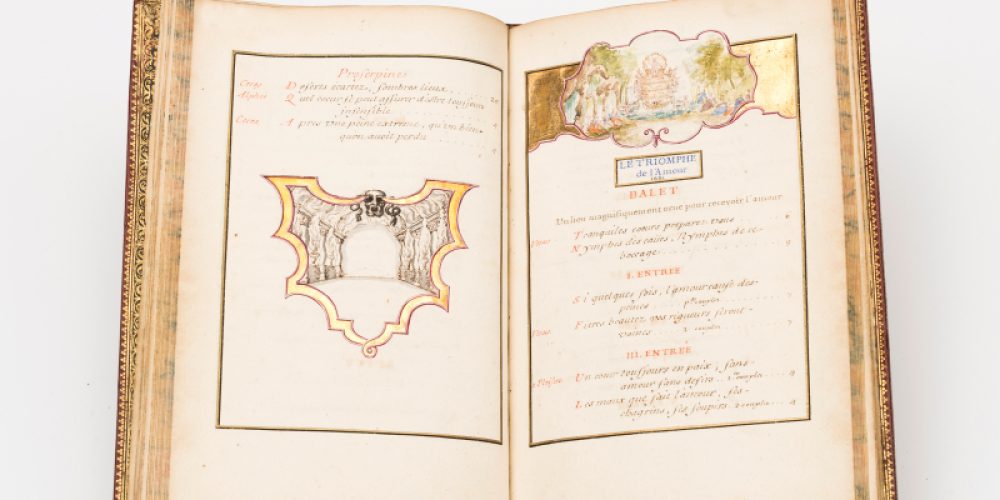 Proserpine
Ceres Deserts écartez, sombres lieux 20
Alphée Quel coeur se peut assurer d'estre toujours
insensible 4
Apres une peine extreme, qu'un bien
qu'on avoit perdu 4
LE TRIOMPHE
de l'Amour
1681
BALET
Un lieu magnifiquement orné pour recevoir l'amour
Venus Tranquiles coeurs preparez vous 6
Nymphes des eaux, Nymphes de ce
boccage 9
I. ENTREE
Si quelques fois, l'amour cause des
peines
Fieres beautez vos rigueurs seront
vaines 2 couplet 7
III. ENTRÉE
Un coeur toujours en paix, sans
amour sans desirs 4
Les maux que fait l'amour, ses
chagrins, ses soupirs 2 couplet 4